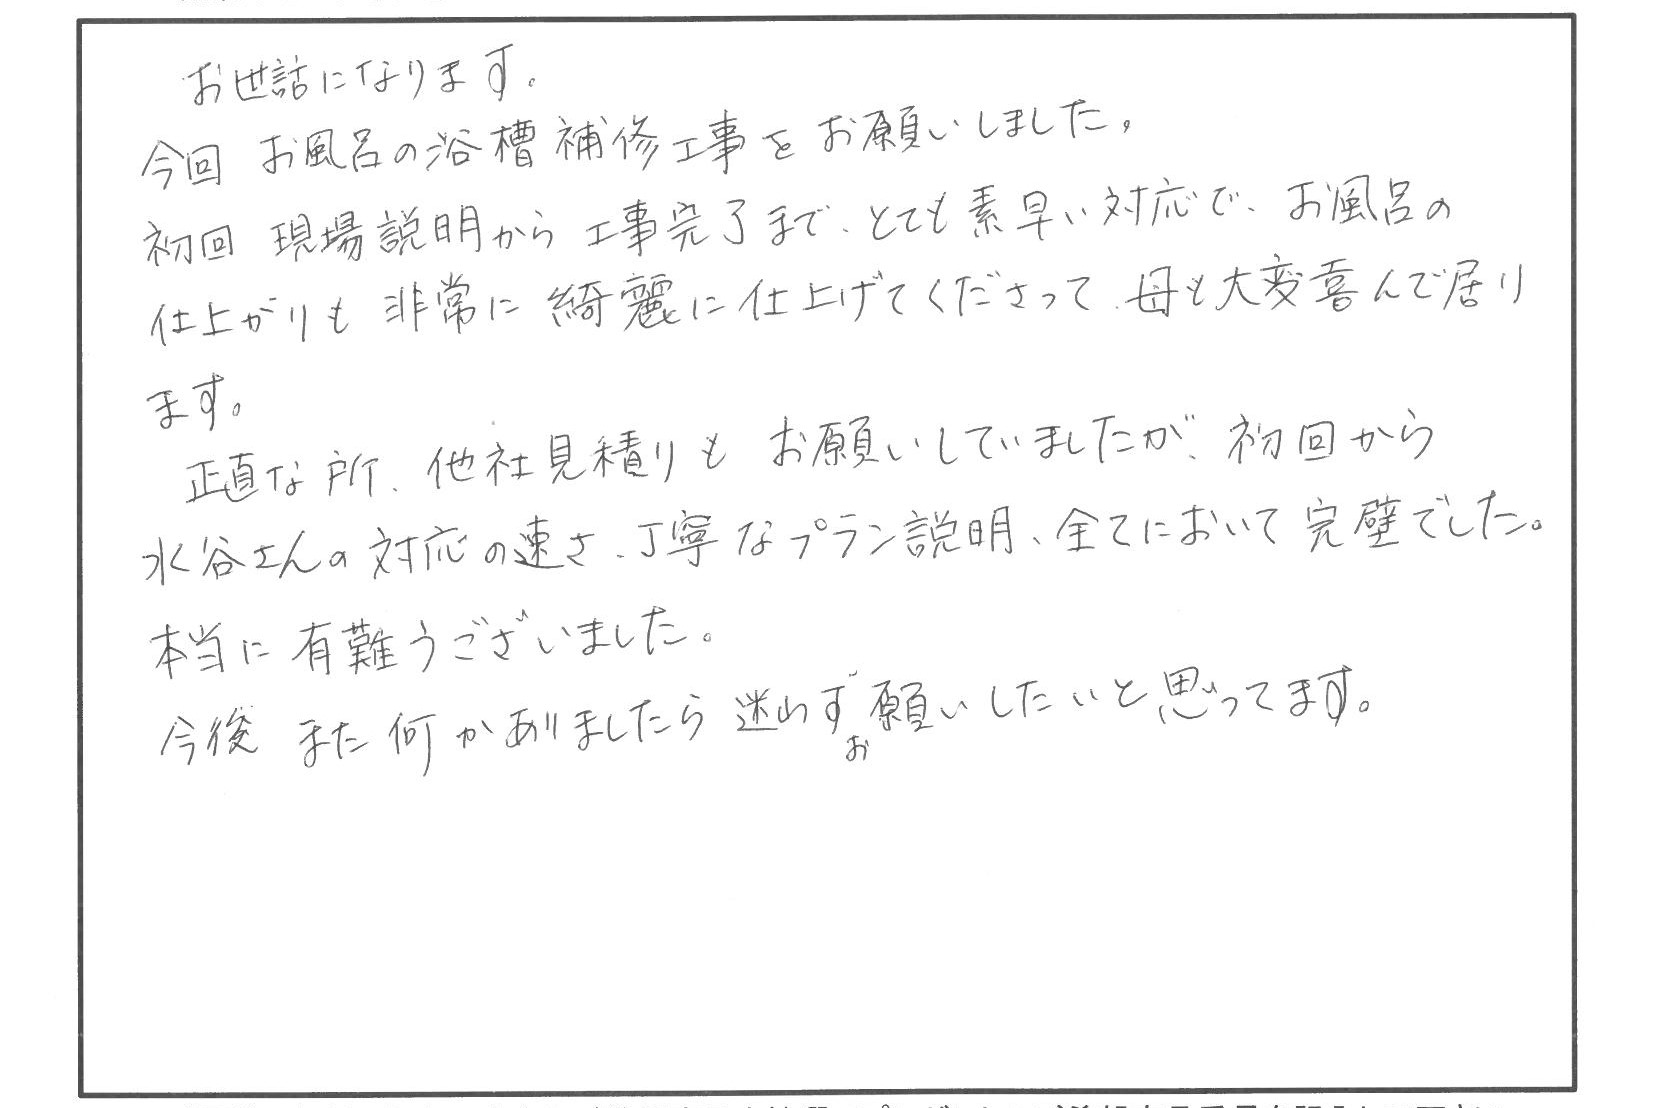 お世話になります。
今回 お風呂の浴槽補修工事をお願いしました。
初回 現場説明から 工事完了まで、とても素早い対応で、お風呂の
仕上がりも 非常に 綺麗に仕上げてくださって、母も大変喜んで居り
ます。
正直な所、他社見積りも お願いしていましたが、初回から
水谷さんの対応の速さ、丁寧なプラン説明、全てにおいて完璧でした。
本当に 有難うございました。
今後 また何かありましたら 迷わずお願いしたいと思ってます。